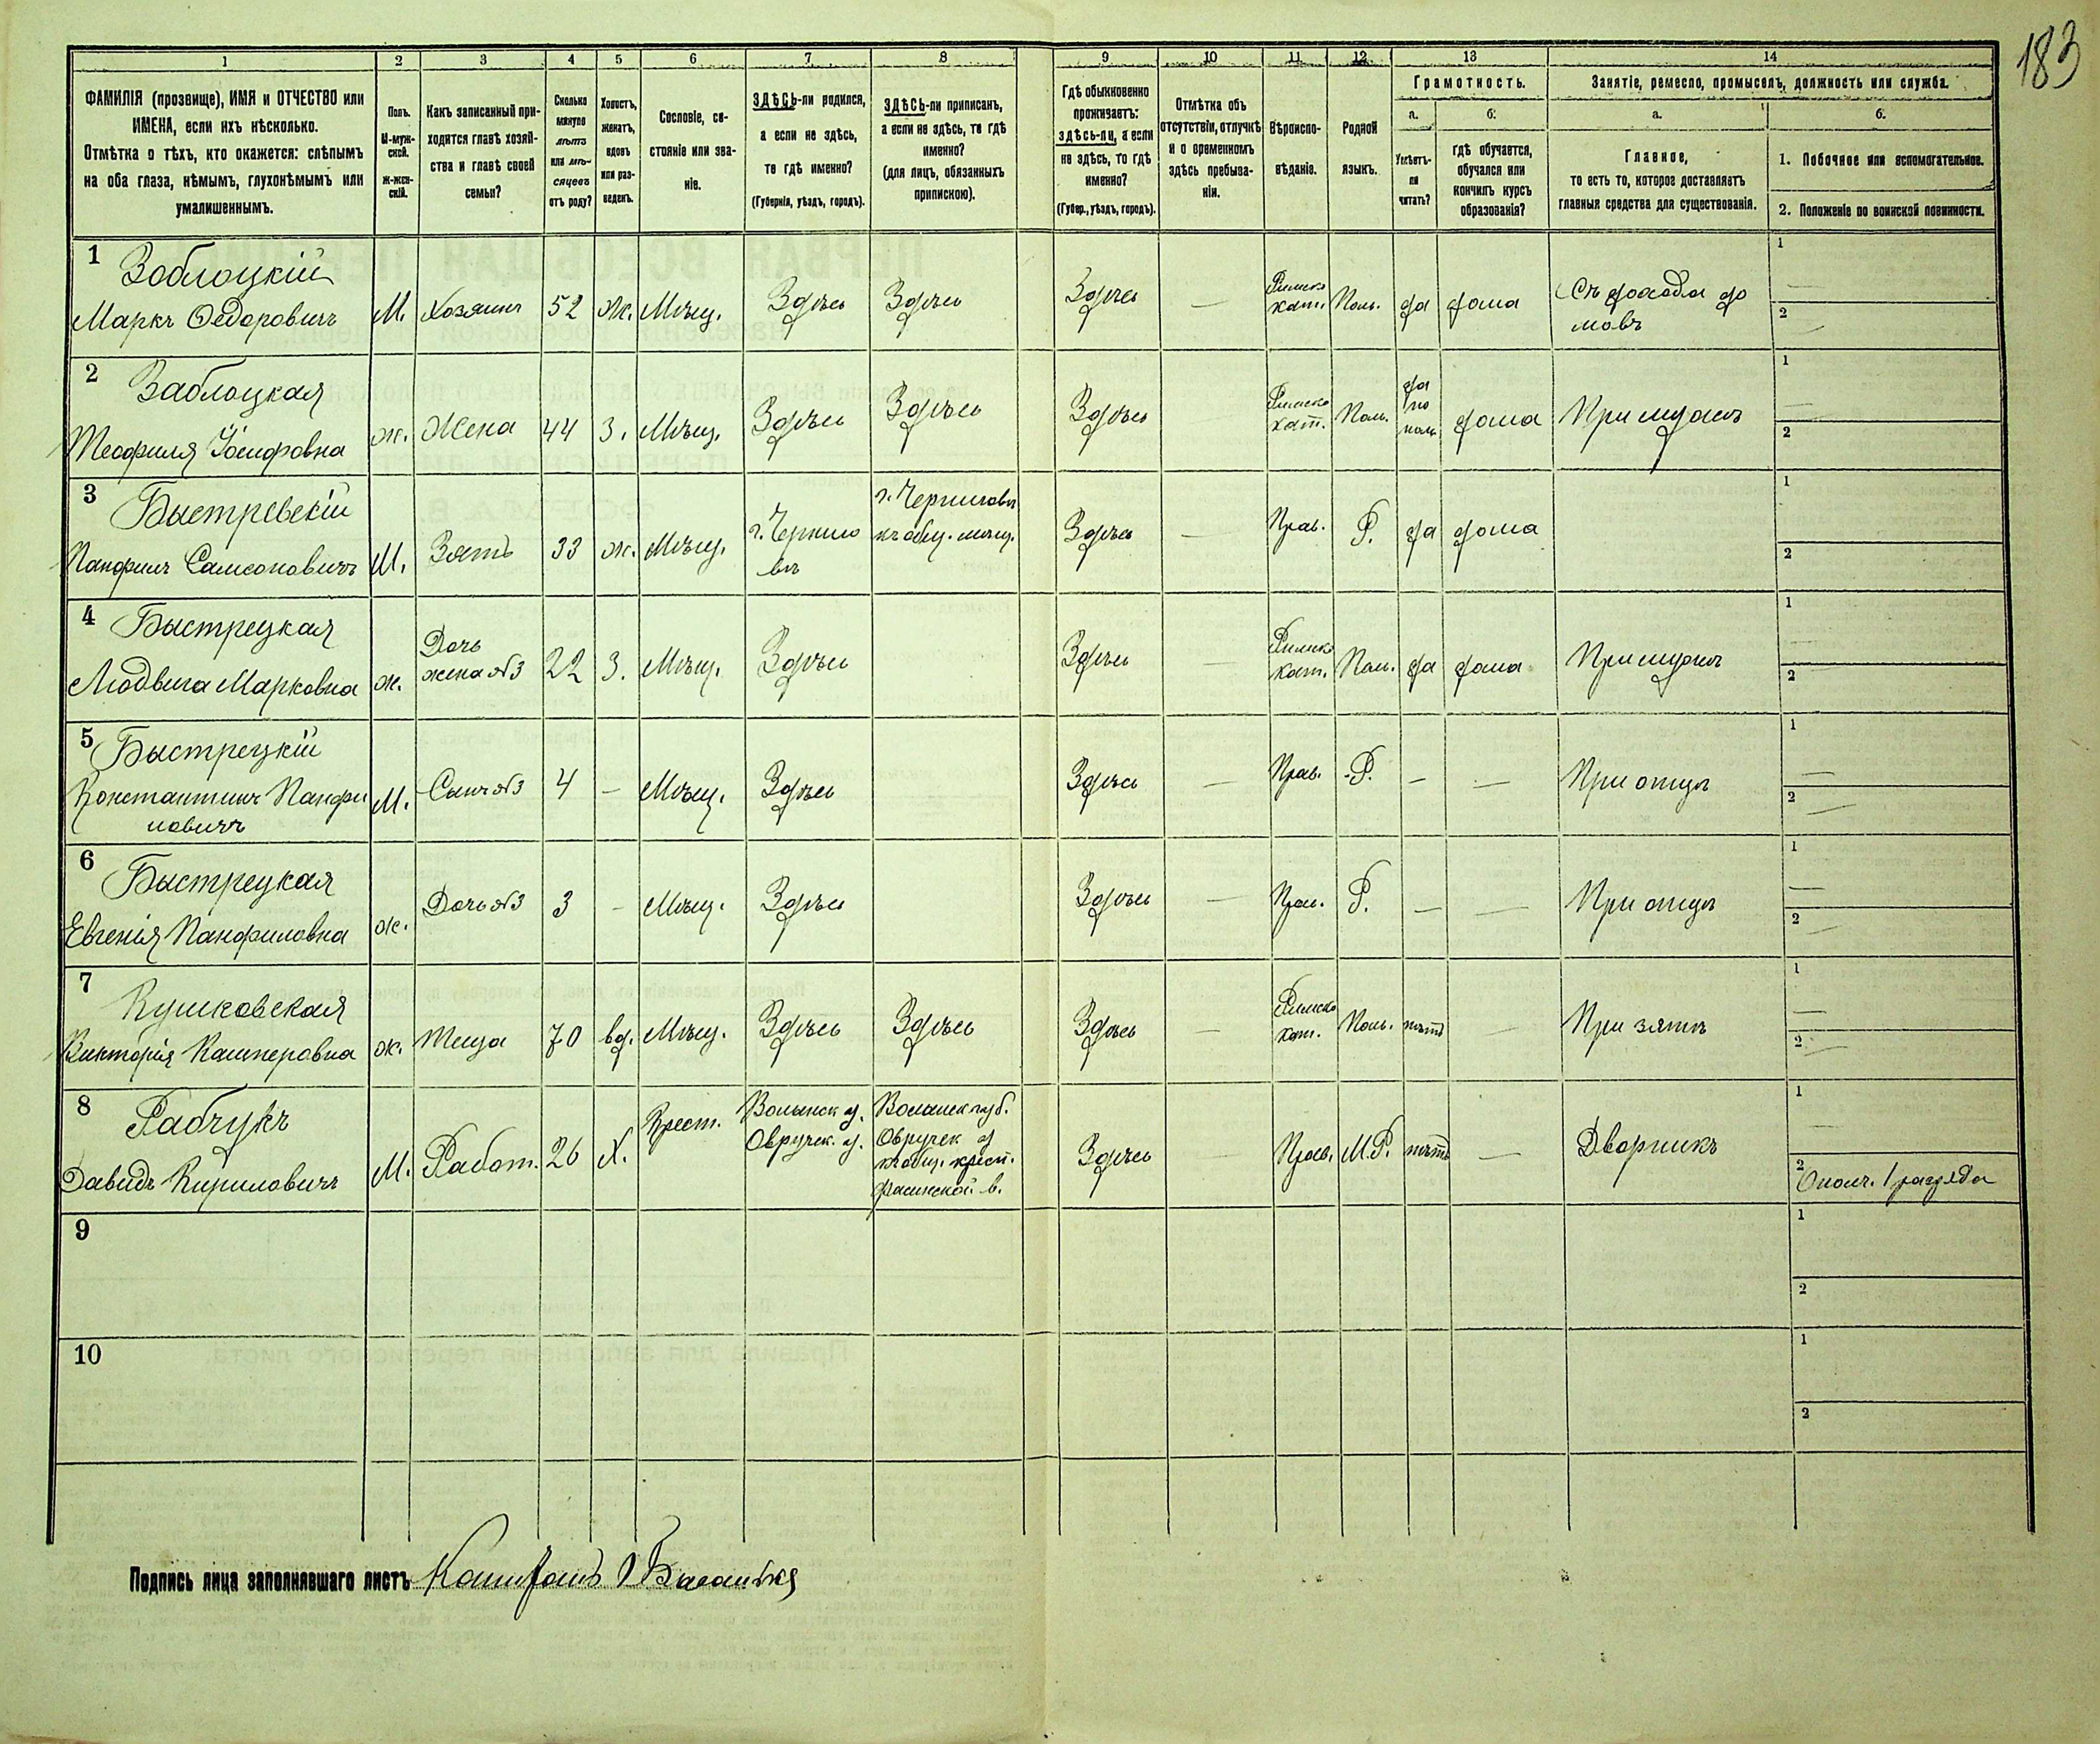 183
1 2 3 4 5 6 7 8 9 10 11 12 13 14
ФАМИЛІЯ (прозвище), ИМЯ и ОТЧЕСТВО или
ИМЕНА, если ихъ нѣсколько.
Отмѣтка о тѣхъ, кто окажется: слѣпымъ
на оба глаза, нѣмымъ, глухонѣмымъ или
умалишеннымъ.
Полъ.
М-муж-
ской.
Ж-жен-
скій.
Какъ записанный при-
ходится главѣ хозяй-
ства и главѣ своей
семьи?
Сколько
минуло
лѣтъ
или мѣ-
сяцевъ
отъ роду?
Холостъ,
женатъ,
вдовъ
или раз-
веденъ.
Сословіе, со-
стояніе или зва-
ніе.
ЗДѢСЬ-ли родился,
а если не здѣсь,
то гдѣ именно?
(Губернія, уѣздъ, городъ).
ЗДѢСЬ-ли приписанъ,
а если не здѣсь, то гдѣ
именно?
(для лицъ, обязанныхъ
припискою).
Гдѣ обыкновенно
проживаетъ:
здѣсь-ли, а если
не здѣсь, то гдѣ
именно?
(Губер., уѣздъ, городъ).
Отмѣтка объ
отсутствіи, отлучкѣ
и о временномъ
здѣсь пребыва-
ніи.
Вѣроиспо-
вѣданіе.
Родной
языкъ.
Грамотность.
а.
Умѣетъ-
ли
читать?
б.
гдѣ обучается,
обучался или
кончилъ курсъ
образованія?
Занятіе, ремесло, промыселъ, должность или служба.
а.
Главное,
то есть то, которое доставляетъ
главныя средства для существованія.
б.
1. Побочное или вспомогательное.
2. Положеніе по воинской повинности.
1 Заблоцкій
Маркъ Ѳедоровичъ М. Хозяинъ 52 ж. Мѣщ. Здѣсь Здѣсь Здѣсь — Римско
кат. Поль. да дома Съ дохода до
мовъ 1 — 2 —
2 Заблоцкая
Теофиля Іосифовна ж. Жена 44 З. Мѣщ. Здѣсь Здѣсь Здѣсь — Римско
кат. Поль. да
по
поль. дома При мужѣ 1 — 2
3 Быстревскій
Панфилъ Самсоновичъ М. Зять 33 ж. Мѣщ. г. Черниго
въ г. Черниговъ
къ общ. мѣщ. Здѣсь — Прав. Р. да дома 1 2
4 Быстрецкая
Людвига Марковна ж. Дочь
жена №3 22 З. Мѣщ. Здѣсь Здѣсь — Римско
кат. Поль. да дома При мужѣ 1 — 2
5 Быстрецкій
Константинъ Панфи
ловичъ М. Сынъ №3 4 — Мѣщ. Здѣсь Здѣсь — Прав. Р. — — При отцѣ 1 — 2 —
6 Быстрецкая
Евгенія Панфиловна ж. Дочь №3 3 — Мѣщ. Здѣсь Здѣсь — Прав. Р. — — При отцѣ 1 — 2 —
7 Кушковская
Викторія Касперовна ж. Теща 70 вд. Мѣщ. Здѣсь Здѣсь Здѣсь — Римско
кат. Поль. нѣтъ — При зятѣ 1 — 2 —
8 Рабчукъ
Давидъ Кириловичъ М. Работ. 26 Х. Крест. Волынск г.
Овручск. у. Волынск губ.
Овручск у
къ общ. крест.
в. Здѣсь — Прав. М.Р. нѣтъ — Дворникъ 1 — 2 Ополч. 1 разряда
9 1 2
10 1 2
Подпись лица заполнявшаго листъ